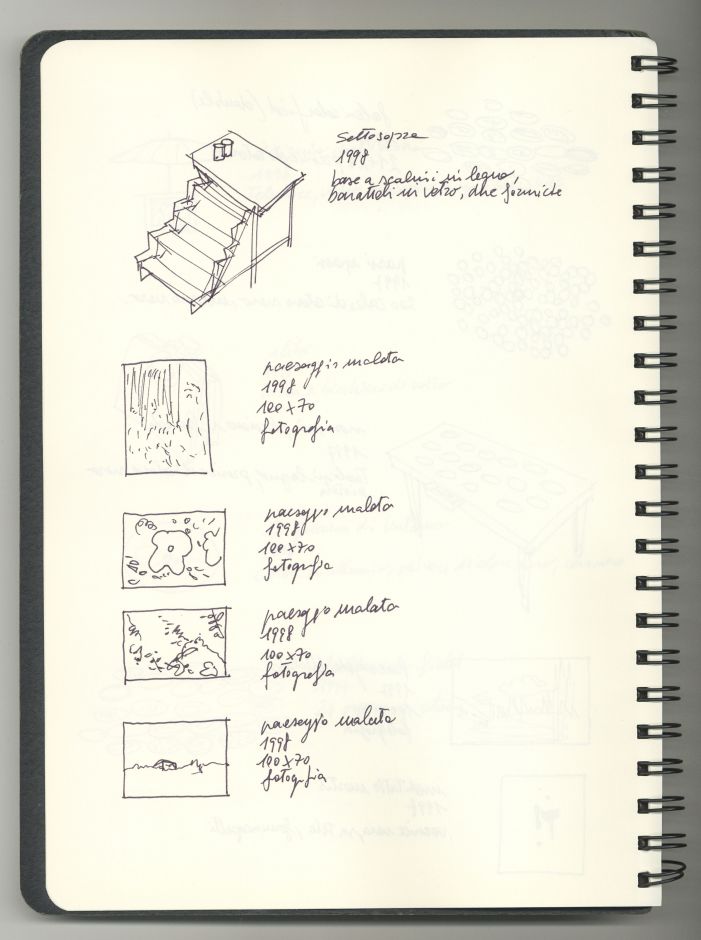 Sottosopra
1998
base a scalini in legno,
barattoli in vetro, due formiche
paesaggio malato
1998
100x70
fotografia
paesaggio malato
1998
100x70
fotografia
paesaggio malato
1998
100x70
fotografia
paesaggio malato
1998
100x70
fotografia